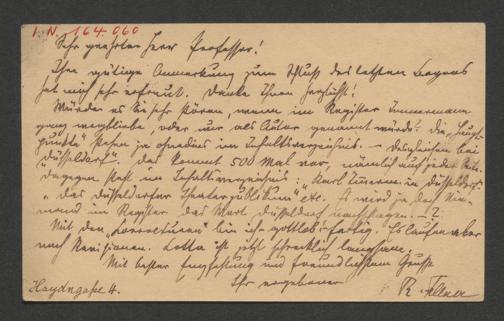 I. N. 164.060
Sehr geehrter Herr Professor!
Ihre gütige Anmerkung zum Schluß des letzten Bogens
hat mich sehr erfreut. Danke Ihnen herzlichst!
Würden es Sie sehr stören, wenn im Register Immermann
ganz wegbliebe, oder nur als Autor genannt würde? Die "Haupt-
punkte" stehen ja ohnedies im Inhaltsverzeichnis. – Desgleichen bei
"Düsseldorf". Das kommt 500 Mal vor, nämlich auf jeder Seite.
Dagegen steht im Inhaltsverzeichnis: "Karl Immerm. in Düsseldorf".
"das Düsseldorfer Theaterpublikum" etc. Es wird ja doch Nie-
mand im Register das Wort Düsseldorf nachschlagen. – ?
Mit den "Correcturen" bin ich gottlob fertig. Es laufen aber
noch Revisionen. Cotta ist jetzt schrecklich langsam.
Mit bester Empfehlung und freundlichstem Gruße
Ihr ergebener
Haydngasse 4. R. Fellner